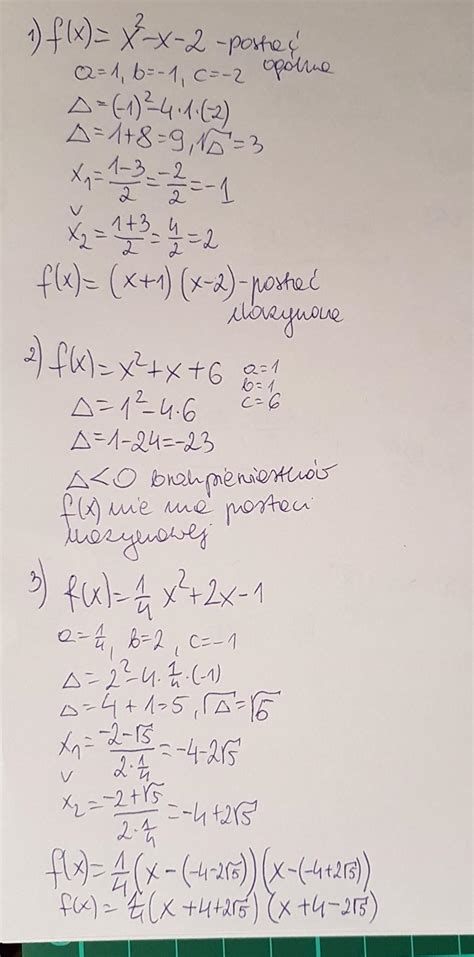 1) f(x) = x² - x - 2 - postać
ogólna
a=1, b=-1, c=-2
Δ = (-1)² - 4·1·(-2)
Δ = 1+8 = 9, √Δ = 3
x₁ = (1-3)/2 = -2/2 = -1
v
x₂ = (1+3)/2 = 4/2 = 2
f(x) = (x+1)(x-2) - postać
iloczynowa
2) f(x) = x² + x + 6 a=1
b=1
c=6
Δ = 1² - 4·6
Δ = 1 - 24 = -23
Δ < 0 brak pierwiastków
f(x) nie ma postaci
iloczynowej
3) f(x) = 1/4 x² + 2x - 1
a = 1/4, b=2, c=-1
Δ = 2² - 4·1/4·(-1)
Δ = 4 + 1 = 5, √Δ = √5
x₁ = (-2-√5)/(2·1/4) = -4-2√5
v
x₂ = (-2+√5)/(2·1/4) = -4+2√5
f(x) = 1/4 (x-(-4-2√5))(x-(-4+2√5))
f(x) = 1/4 (x+4+2√5)(x+4-2√5)